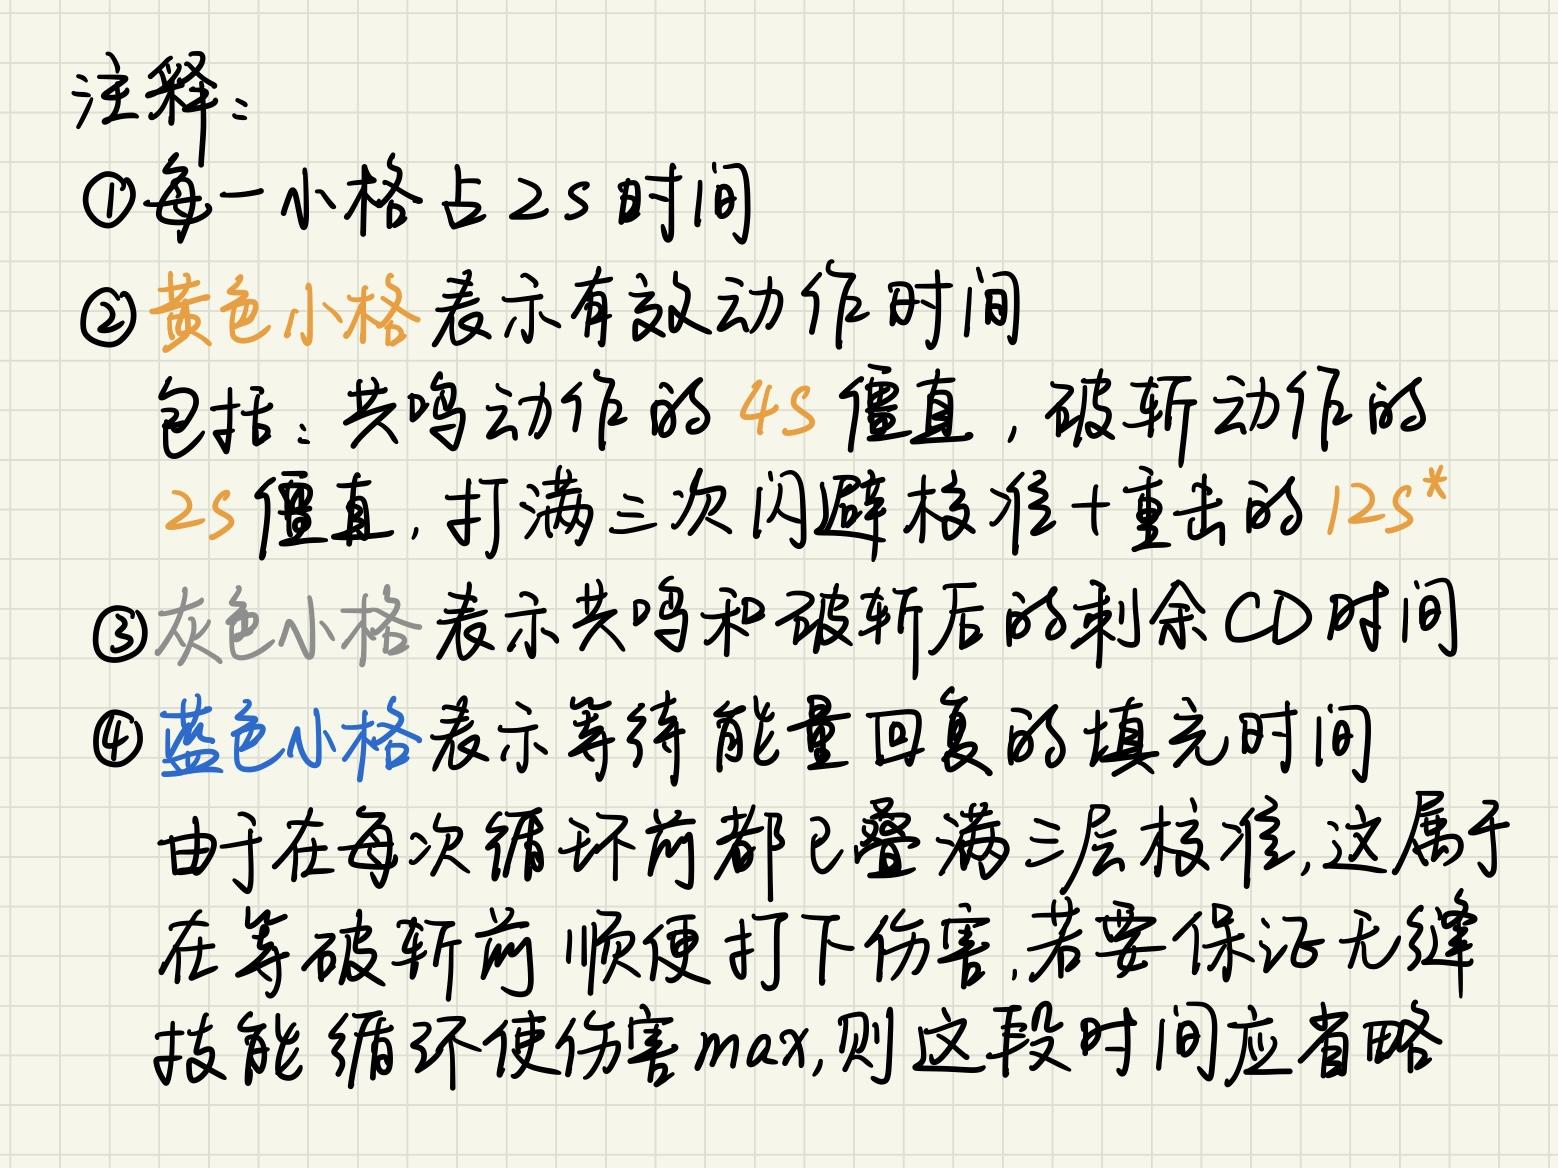 注释：
①每一小格占2s时间
②黄色小格表示有效动作时间
包括：共鸣动作的4S僵直，破斩动作的
2S僵直，打满三次闪避校准+重击的12S*
③灰色小格表示共鸣和破斩后的剩余CD时间
④蓝色小格表示等待能量回复的填充时间
由于在每次循环前都已叠满三层校准，这属于
在等破斩前顺便打下伤害，若要保证无缝
技能循环使伤害max，则这段时间应省略